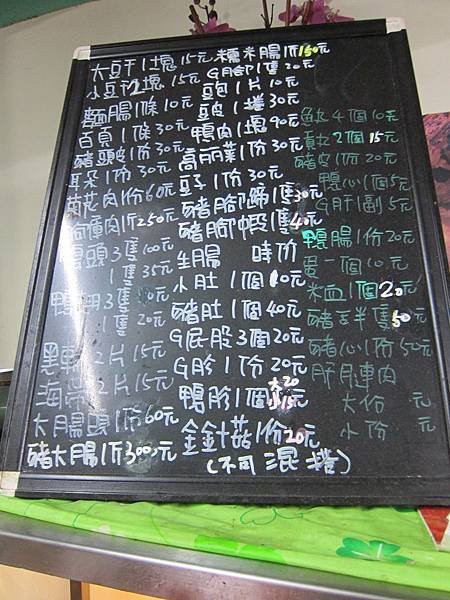 大豆干1塊15元
小豆干2塊15元
麵腸1條10元
百頁1條30元
豬頭皮1份30元
耳朵1份30元
菊花肉1份60元
肉1斤250元
鴨頭3隻100元
1隻35元
鴨翅3隻 0元
1隻20元
黑輪2片15元
海帶2片15元
大腸頭1份60元
豬大腸1斤300元
糯米腸1斤150元
G腳1隻20元
豆包1片10元
豆皮1捲30元
鴨肉1塊90元
高丽菜1份30元
豆子1份30元
豬腳蹄1隻30元
豬腳蝦1隻40元
生腸 時价
小肚1個10元
豬肚1個40元
G屁股3個20元
G胗1份20元
鴨胗1個大20小15元
金針菇1份20元
(不可混捲)
魚丸4個10元
貢丸2個15元
豬皮1份20元
鴨心1個5元
G肝1副5元
鴨腸1份20元
蛋一個10元
米血1個20元
豬舌半隻50元
豬心1份50元
肝月連肉
大份 元
小份 元